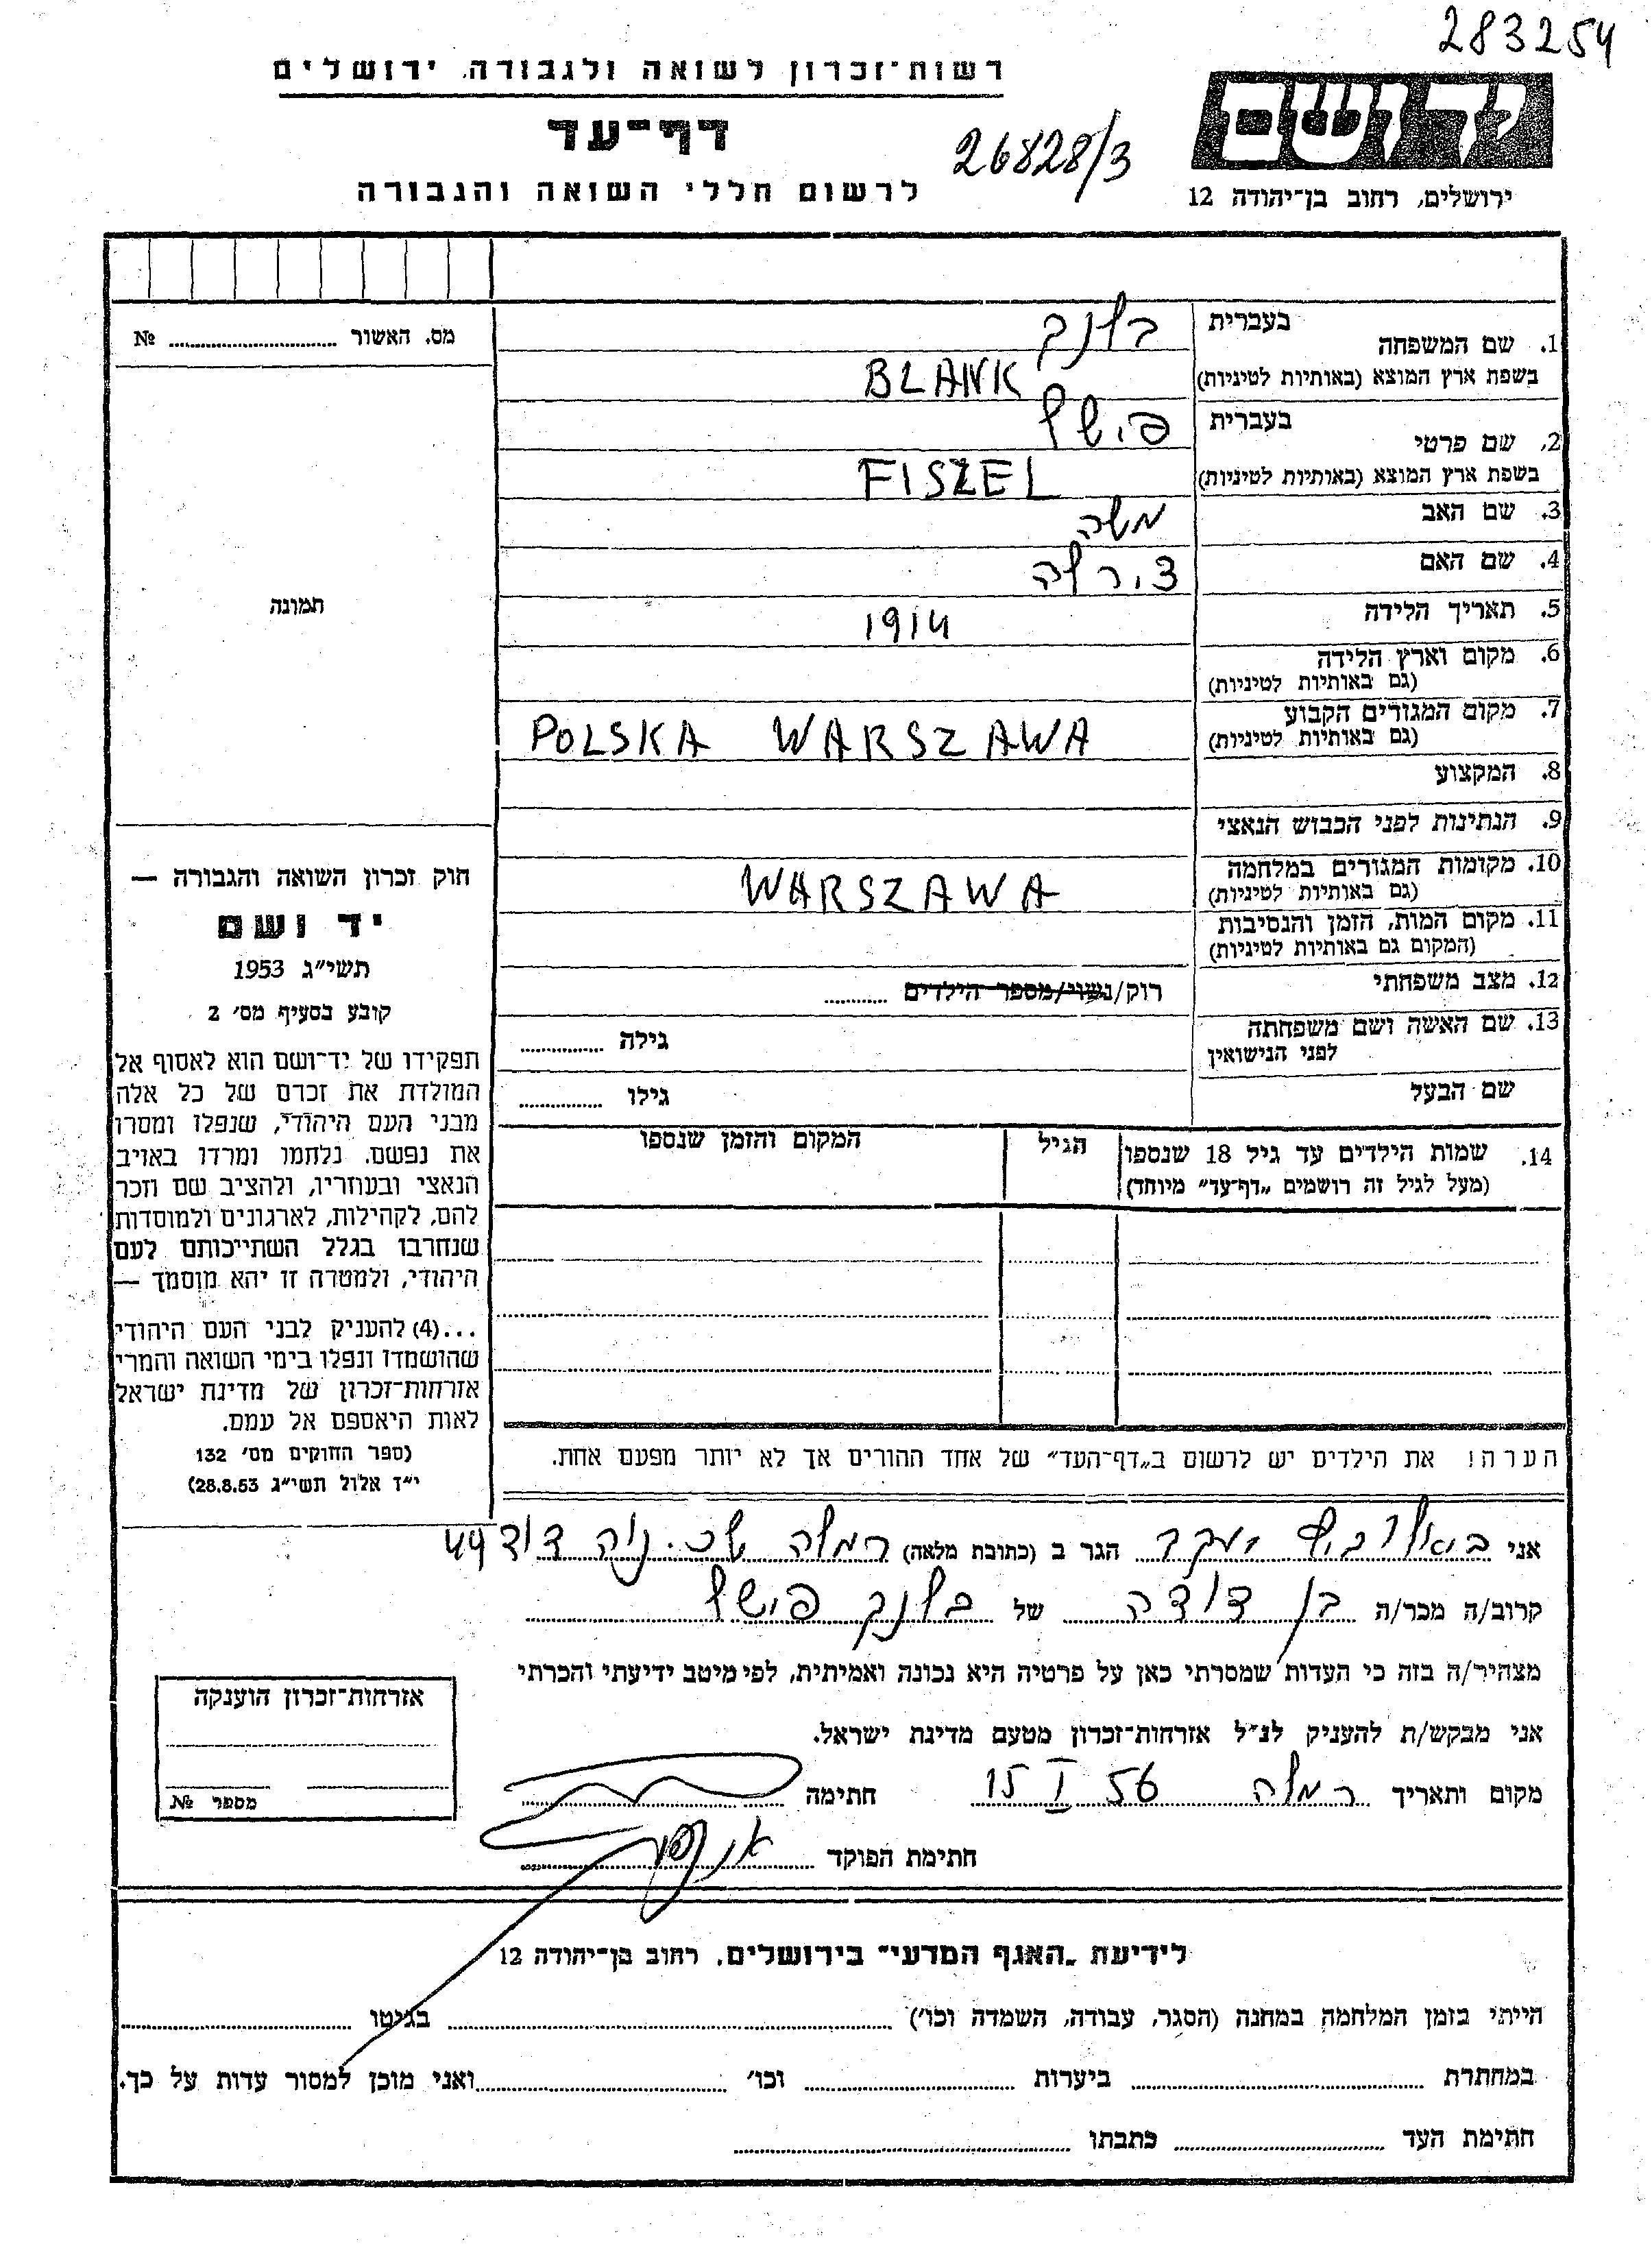 283254
רשות־זכרון לשואה ולגבורה, ירושלים
דף־עד
26828/3
לרשום חללי השואה והגבורה
ירושלים, רחוב בן־יהודה 12
מס. האשור № ........
1. שם המשפחה
בעברית
בלנק
בשפת ארץ המוצא (באותיות לטיניות)
BLANK
2. שם פרטי
בעברית
פישל
בשפת ארץ המוצא (באותיות לטיניות)
FISZEL
3. שם האב
משה
4. שם האם
צירלה
5. תאריך הלידה
1914
6. מקום וארץ הלידה
(גם באותיות לטיניות)
7. מקום המגורים הקבוע
(גם באותיות לטיניות)
POLSKA WARSZAWA
8. המקצוע
9. הנתינות לפני הכבוש הנאצי
10. מקומות המגורים במלחמה
(גם באותיות לטיניות)
WARSZAWA
11. מקום המות, הזמן והנסיבות
(המקום גם באותיות לטיניות)
12. מצב משפחתי
רוק/נשוי/מספר הילדים ........
13. שם האשה ושם משפחתה
לפני הנישואין
גילה ........
שם הבעל
גילו ........
14. שמות הילדים עד גיל 18 שנספו
(מעל לגיל זה רושמים „דף־עד" מיוחד)
הגיל
המקום והזמן שנספו
תמונה
חוק זכרון השואה והגבורה —
יד ושם
תשי"ג 1953
קובע בסעיף מס' 2
תפקידו של יד־ושם הוא לאסוף אל
המולדת את זכרם של כל אלה
מבני העם היהודי, שנפלו ומסרו
את נפשם. נלחמו ומרדו באויב
הנאצי ובעוזריו, ולהציב שם וזכר
להם, לקהילות, לארגונים ולמוסדות
שנחרבו בגלל השתייכותם לעם
היהודי, ולמטרה זו יהא מוסמך —
...(4) להעניק לבני העם היהודי
שהושמדו ונפלו בימי השואה והמרי
אזרחות־זכרון של מדינת ישראל
לאות היאספם אל עמם.
(ספר החוקים מס' 132
י"ז אלול תשי"ג 28.8.53)
הערה! את הילדים יש לרשום ב„דף־העד" של אחד ההורים אך לא יותר מפעם אחת.
אני יעקב הגר ב (כתובת מלאה) רמלה שכ. נוה דוד 49
קרוב/ה מכר/ה בן דודה של בלנק פישל
מצהיר/ה בזה כי העדות שמסרתי כאן על פרטיה היא נכונה ואמיתית, לפי מיטב ידיעתי והכרתי
אני מבקש/ת להעניק לנ"ל אזרחות־זכרון מטעם מדינת ישראל.
מקום ותאריך רמלה 15 I 56 חתימה
חתימת הפוקד
אזרחות־זכרון הוענקה
מספר №
לידיעת „האגף המדעי" בירושלים, רחוב בן־יהודה 12
הייתי בזמן המלחמה במחנה (הסגר, עבודה, השמדה וכו') ........ בגיטו ........
במחתרת ........ ביערות ........ וכו' ........ ואני מוכן למסור עדות על כך.
חתימת העד ........ כתבתו ........